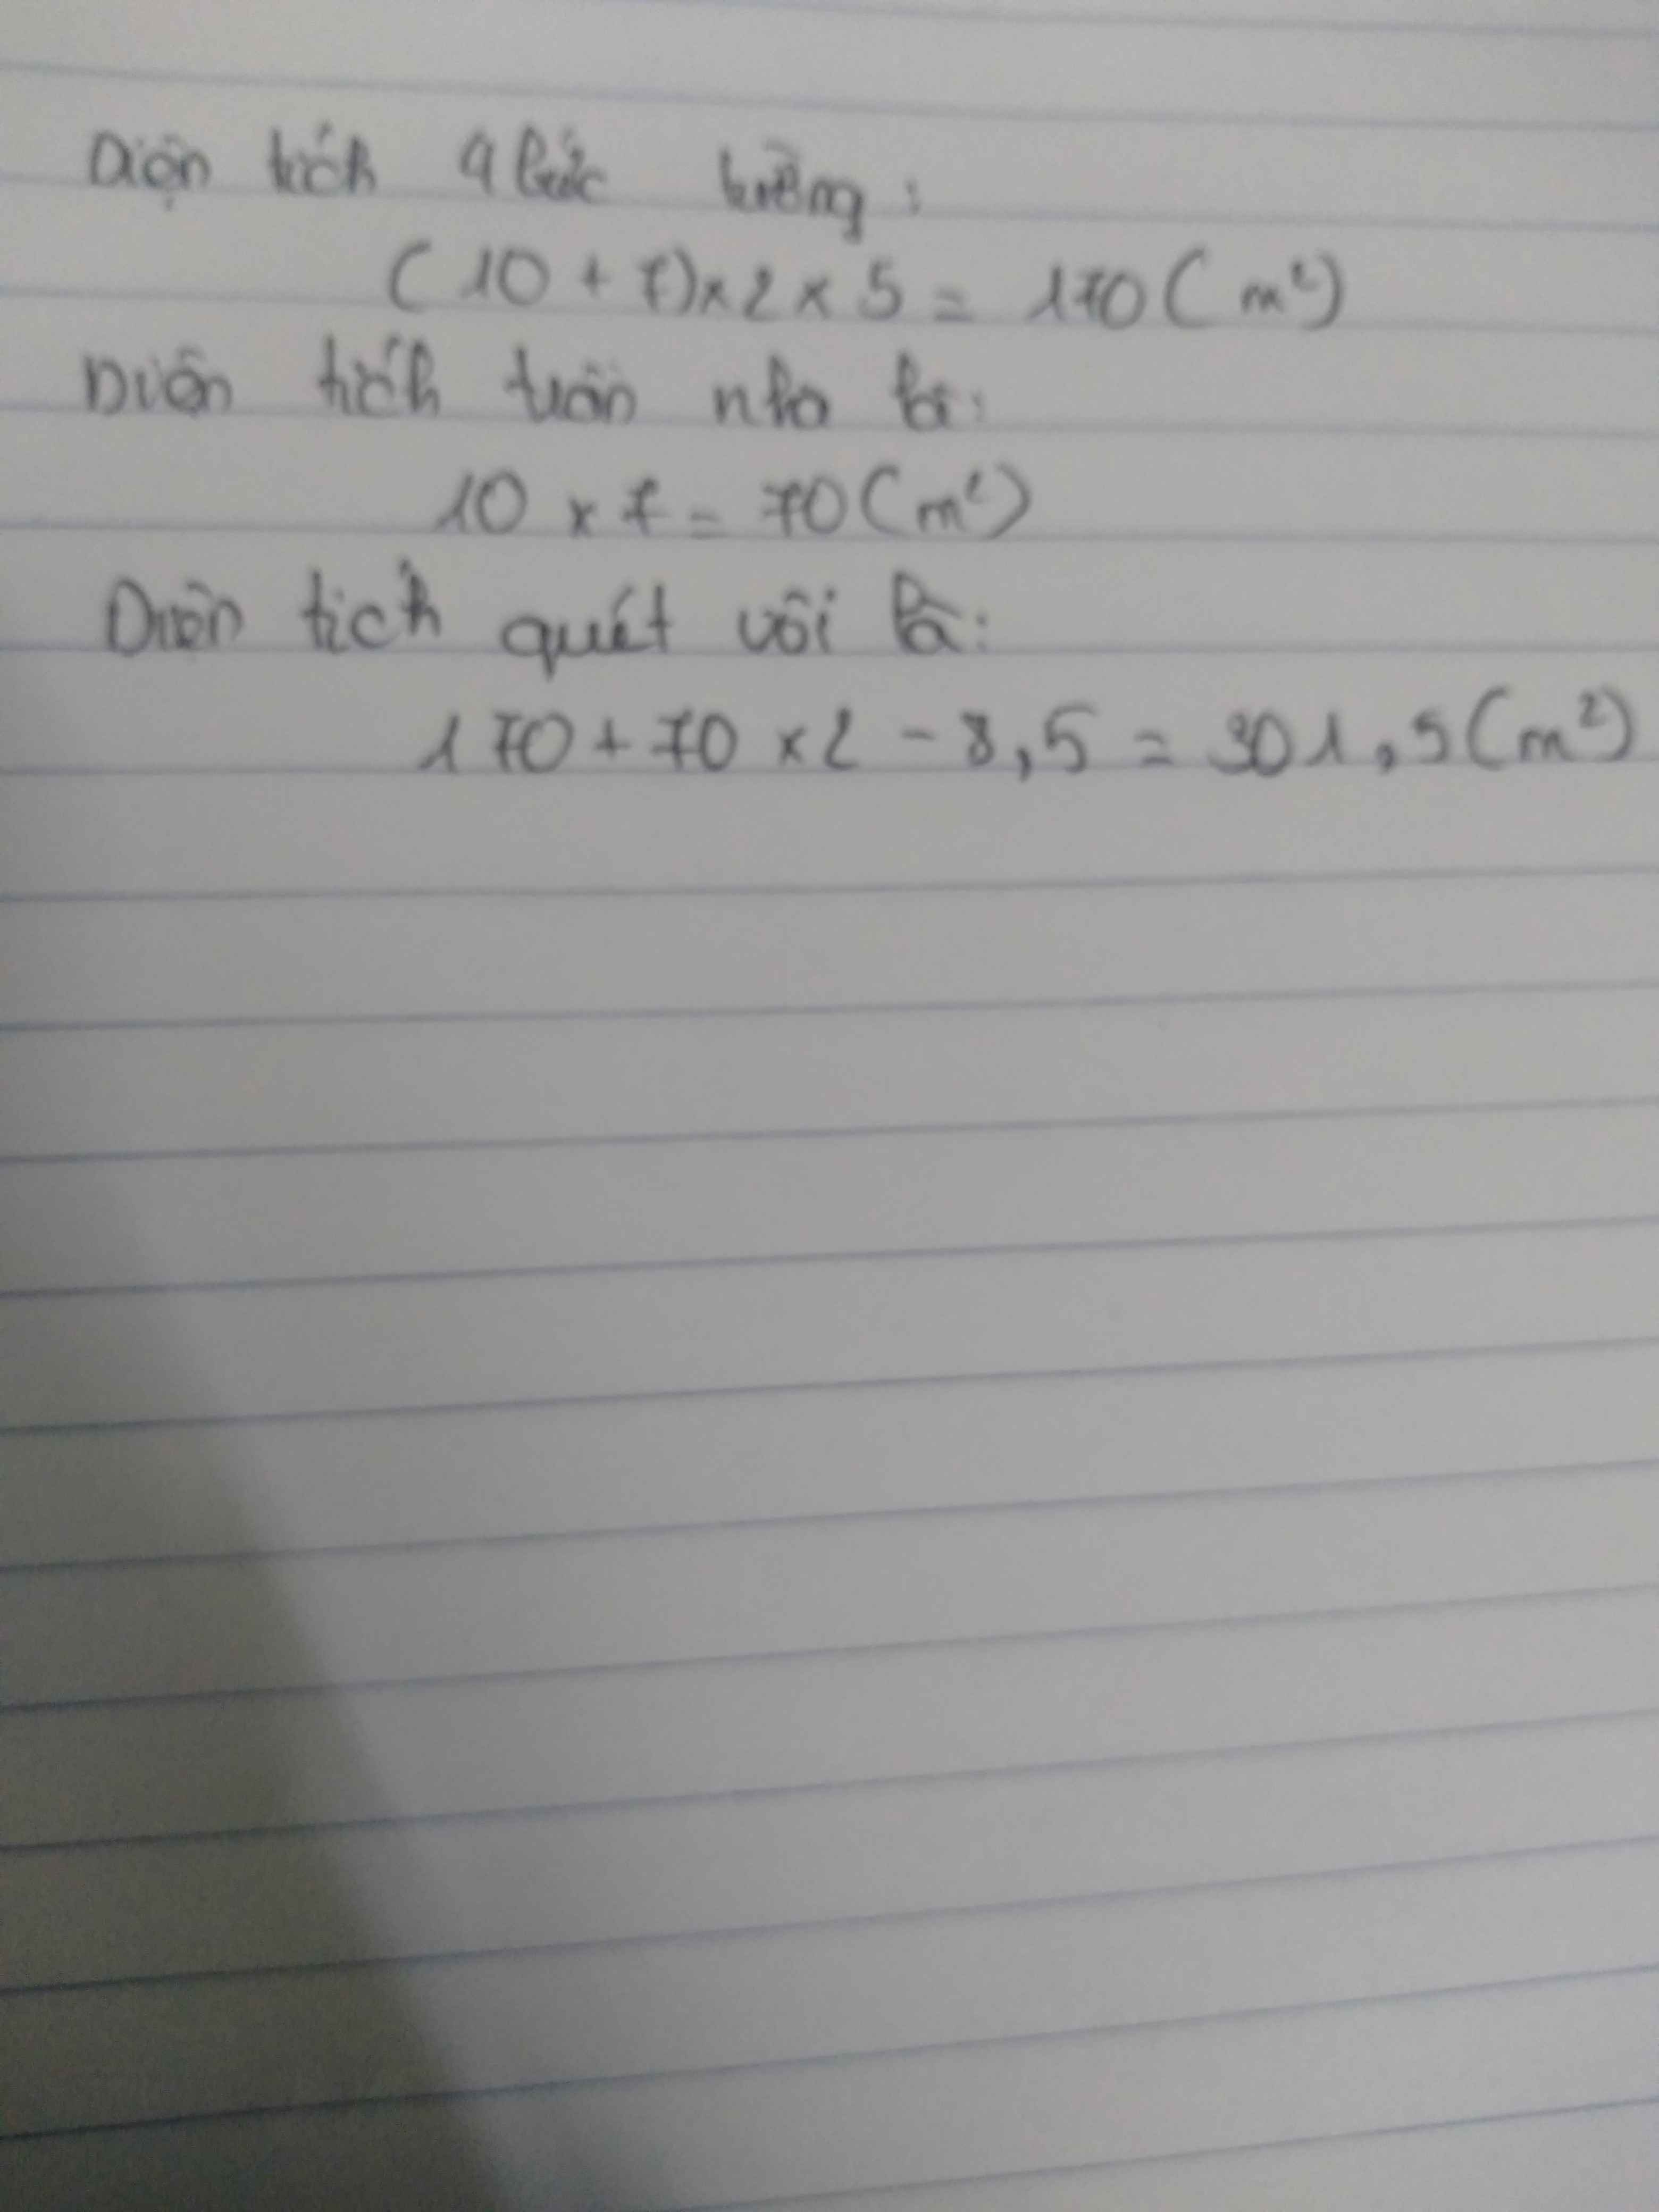 Diện tích 4 bức tường:
(10 + 7) x 2 x 5 = 170 (m²)
Diện tích trần nhà là:
10 x 7 = 70 (m²)
Diện tích quét vôi là:
170 + 70 x 2 - 8,5 = 301,5 (m²)